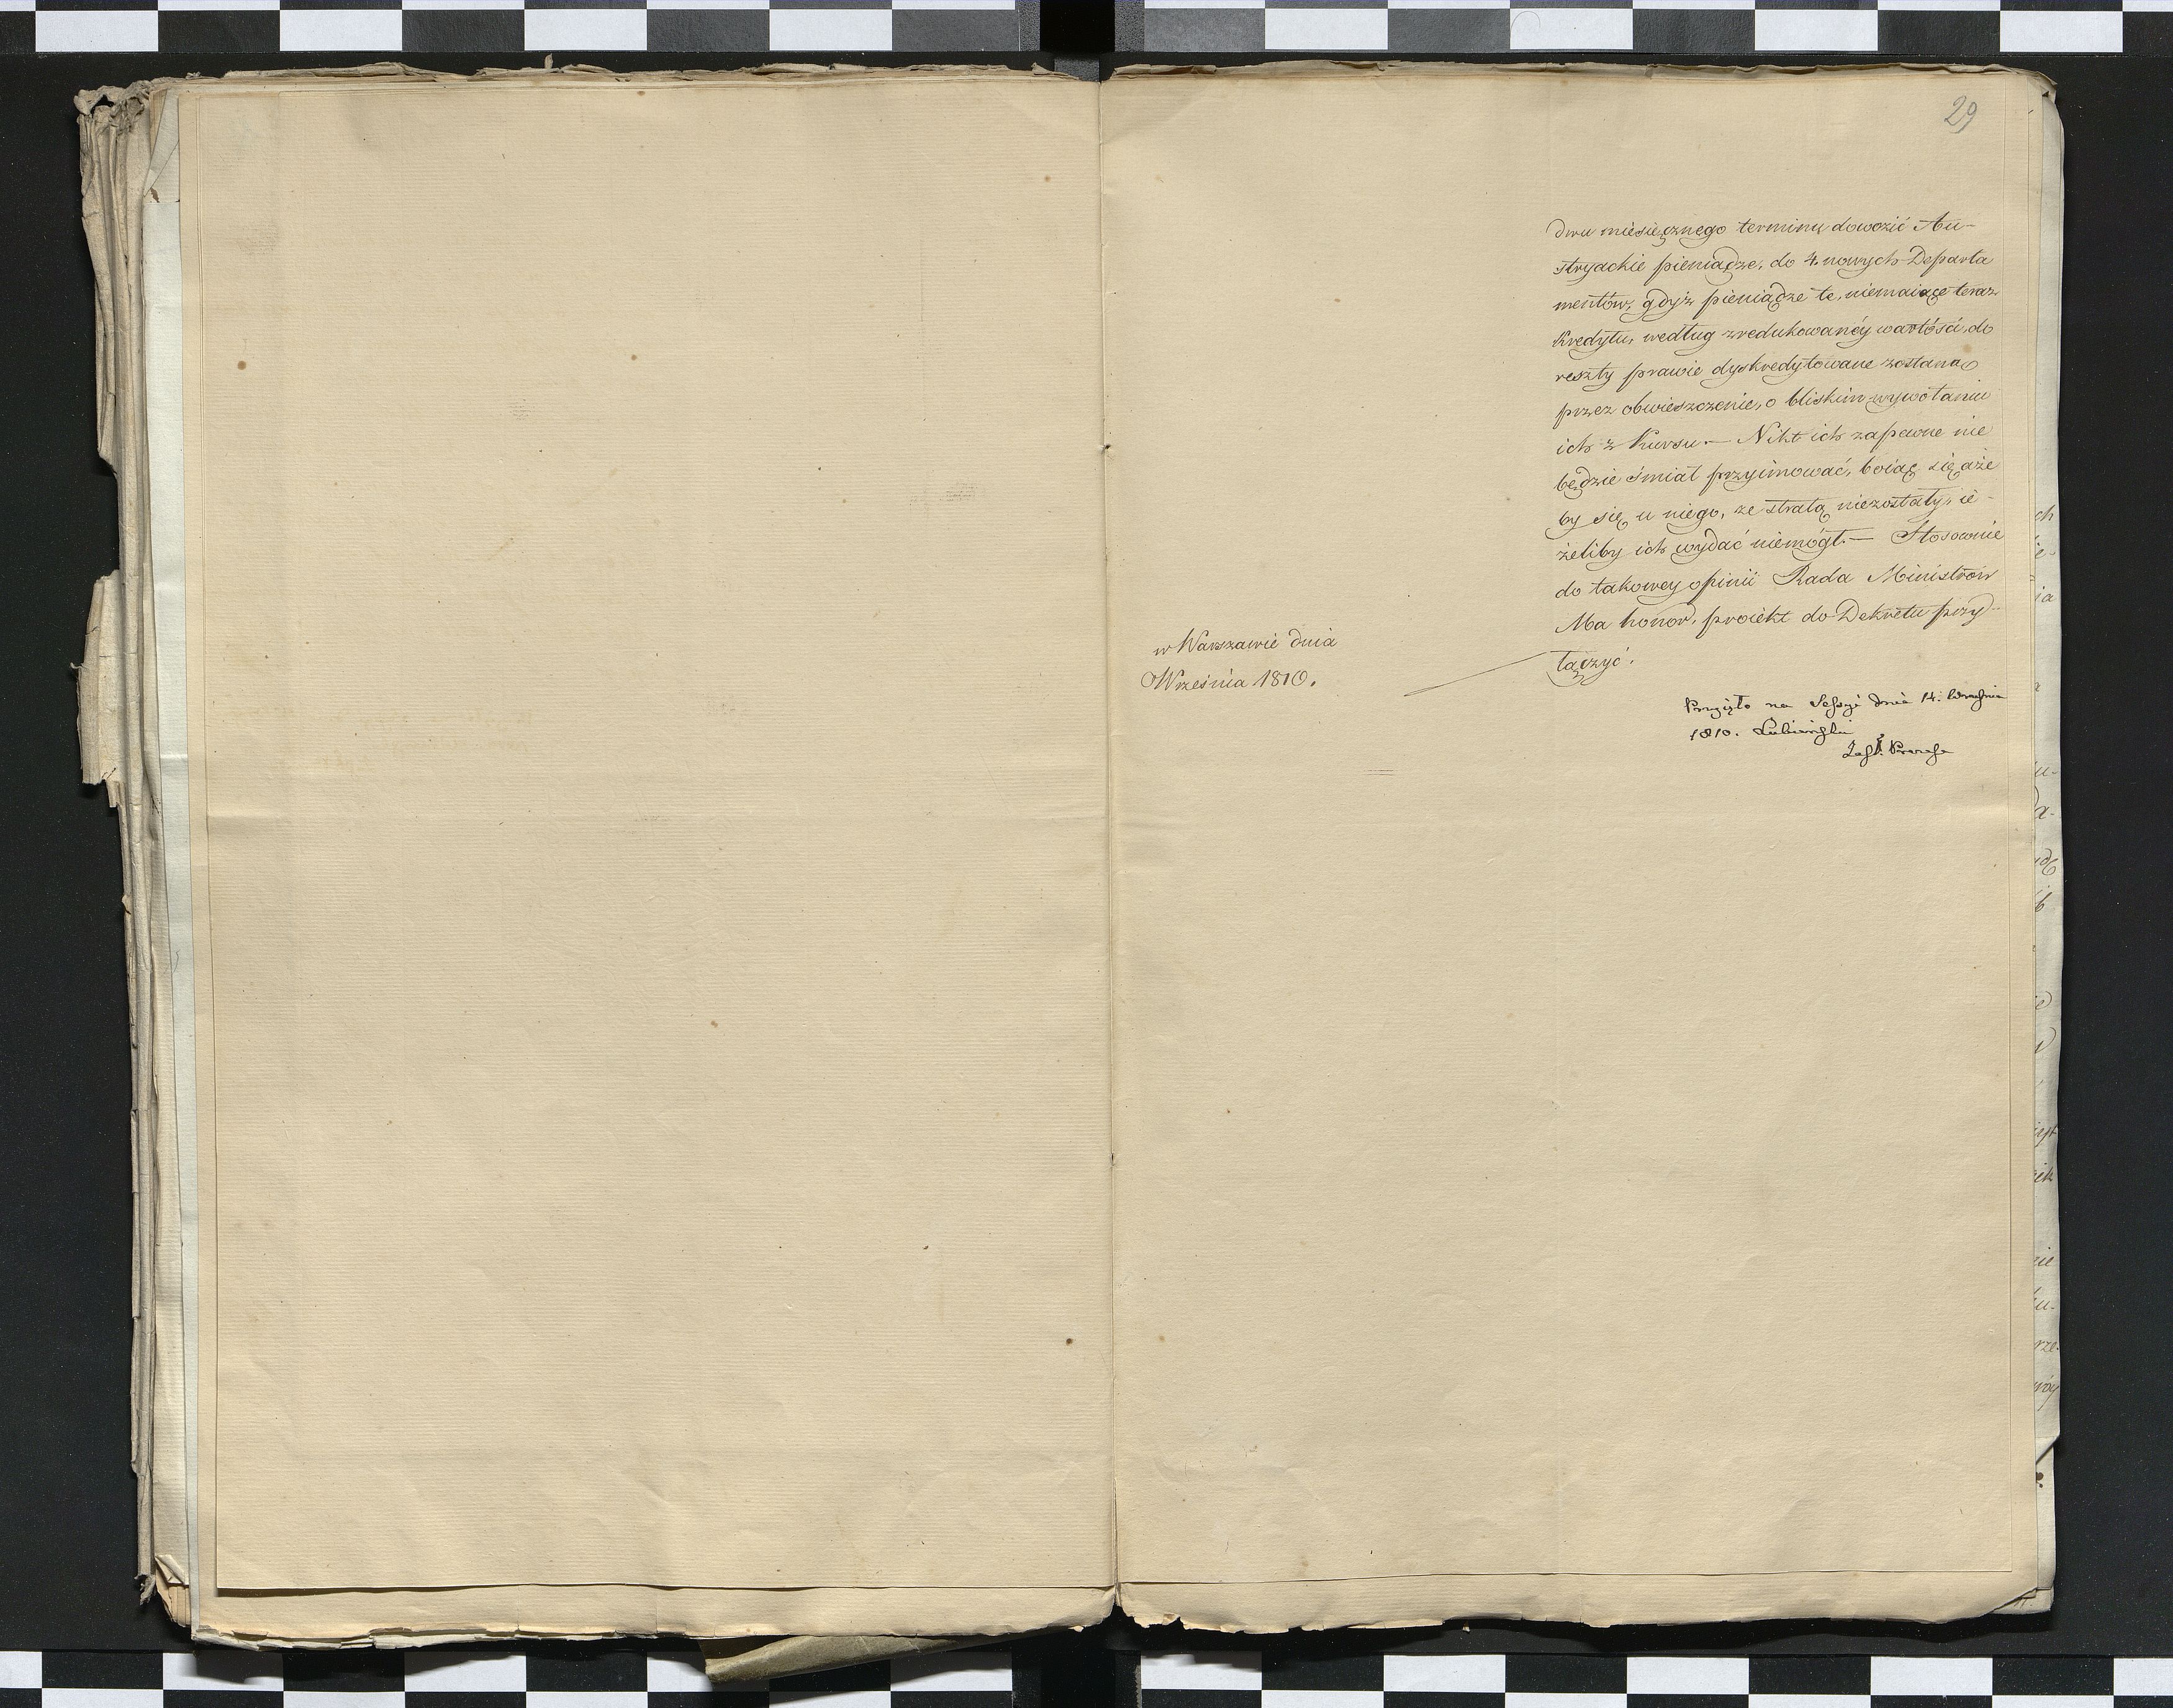 29
dwu miesięcznego terminu dowozić Au-
stryackie pieniądze, do 4. nowych Departa
mentów, gdyż pieniądze te, niemaiące teraz
Kredytu, według zredukowanéy wartości, do
reszty prawie dyskredytowane zostaną
przez obwieszczenie, o bliskim wywołaniu
ich z Kursu. — Nikt ich zapewne nie
będzie śmiał przyimować, boiąc się aże
by się u niego, ze stratą niezostały, ie-
żeliby ich wydać niemógł. — Stosownie
do takowey opinii Rada Ministrów
Ma honor, proiekt do Dekretu przy-
łączyć.
w Warszawie dnia
Września 1810.
Przyięto na Sessyi dnia 14. Września
1810. Łubieński
Zast. Prezesa